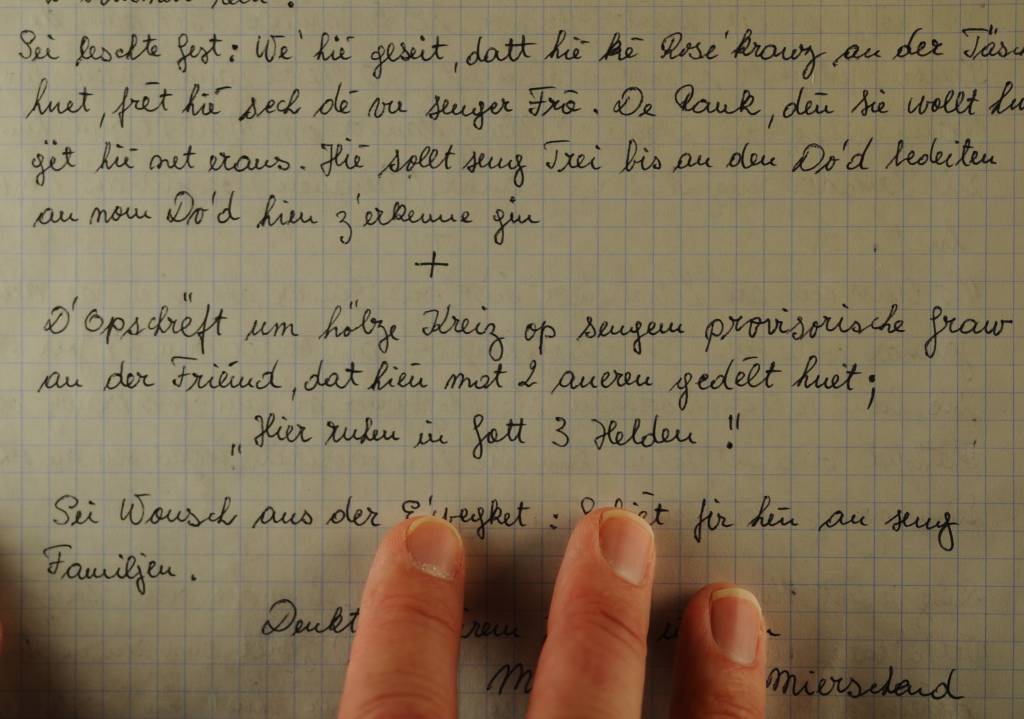 Séi leschte Gest: We' hié geseit, datt hié ké Rosé'kranz an der Täsch
huet, frét hié sech dé vu senger Frâ. De Rank, dén sie wollt hu
gët hié net eraus. Hié sollt seng Trei bis an den Do'd bedeiten
an nom Do'd hien z'erkenne gin
+
D'Opschrëft um hölze Kreiz op sengem provisorische Graw
an der Friémd, dat hién mat 2 aneren gedélt huet;
„Hier ruhen in Gott 3 Helden !"
Séi Wonsch aus der E'wegket : fir hén an seng
Familjen.
Denkt
Mierscheid